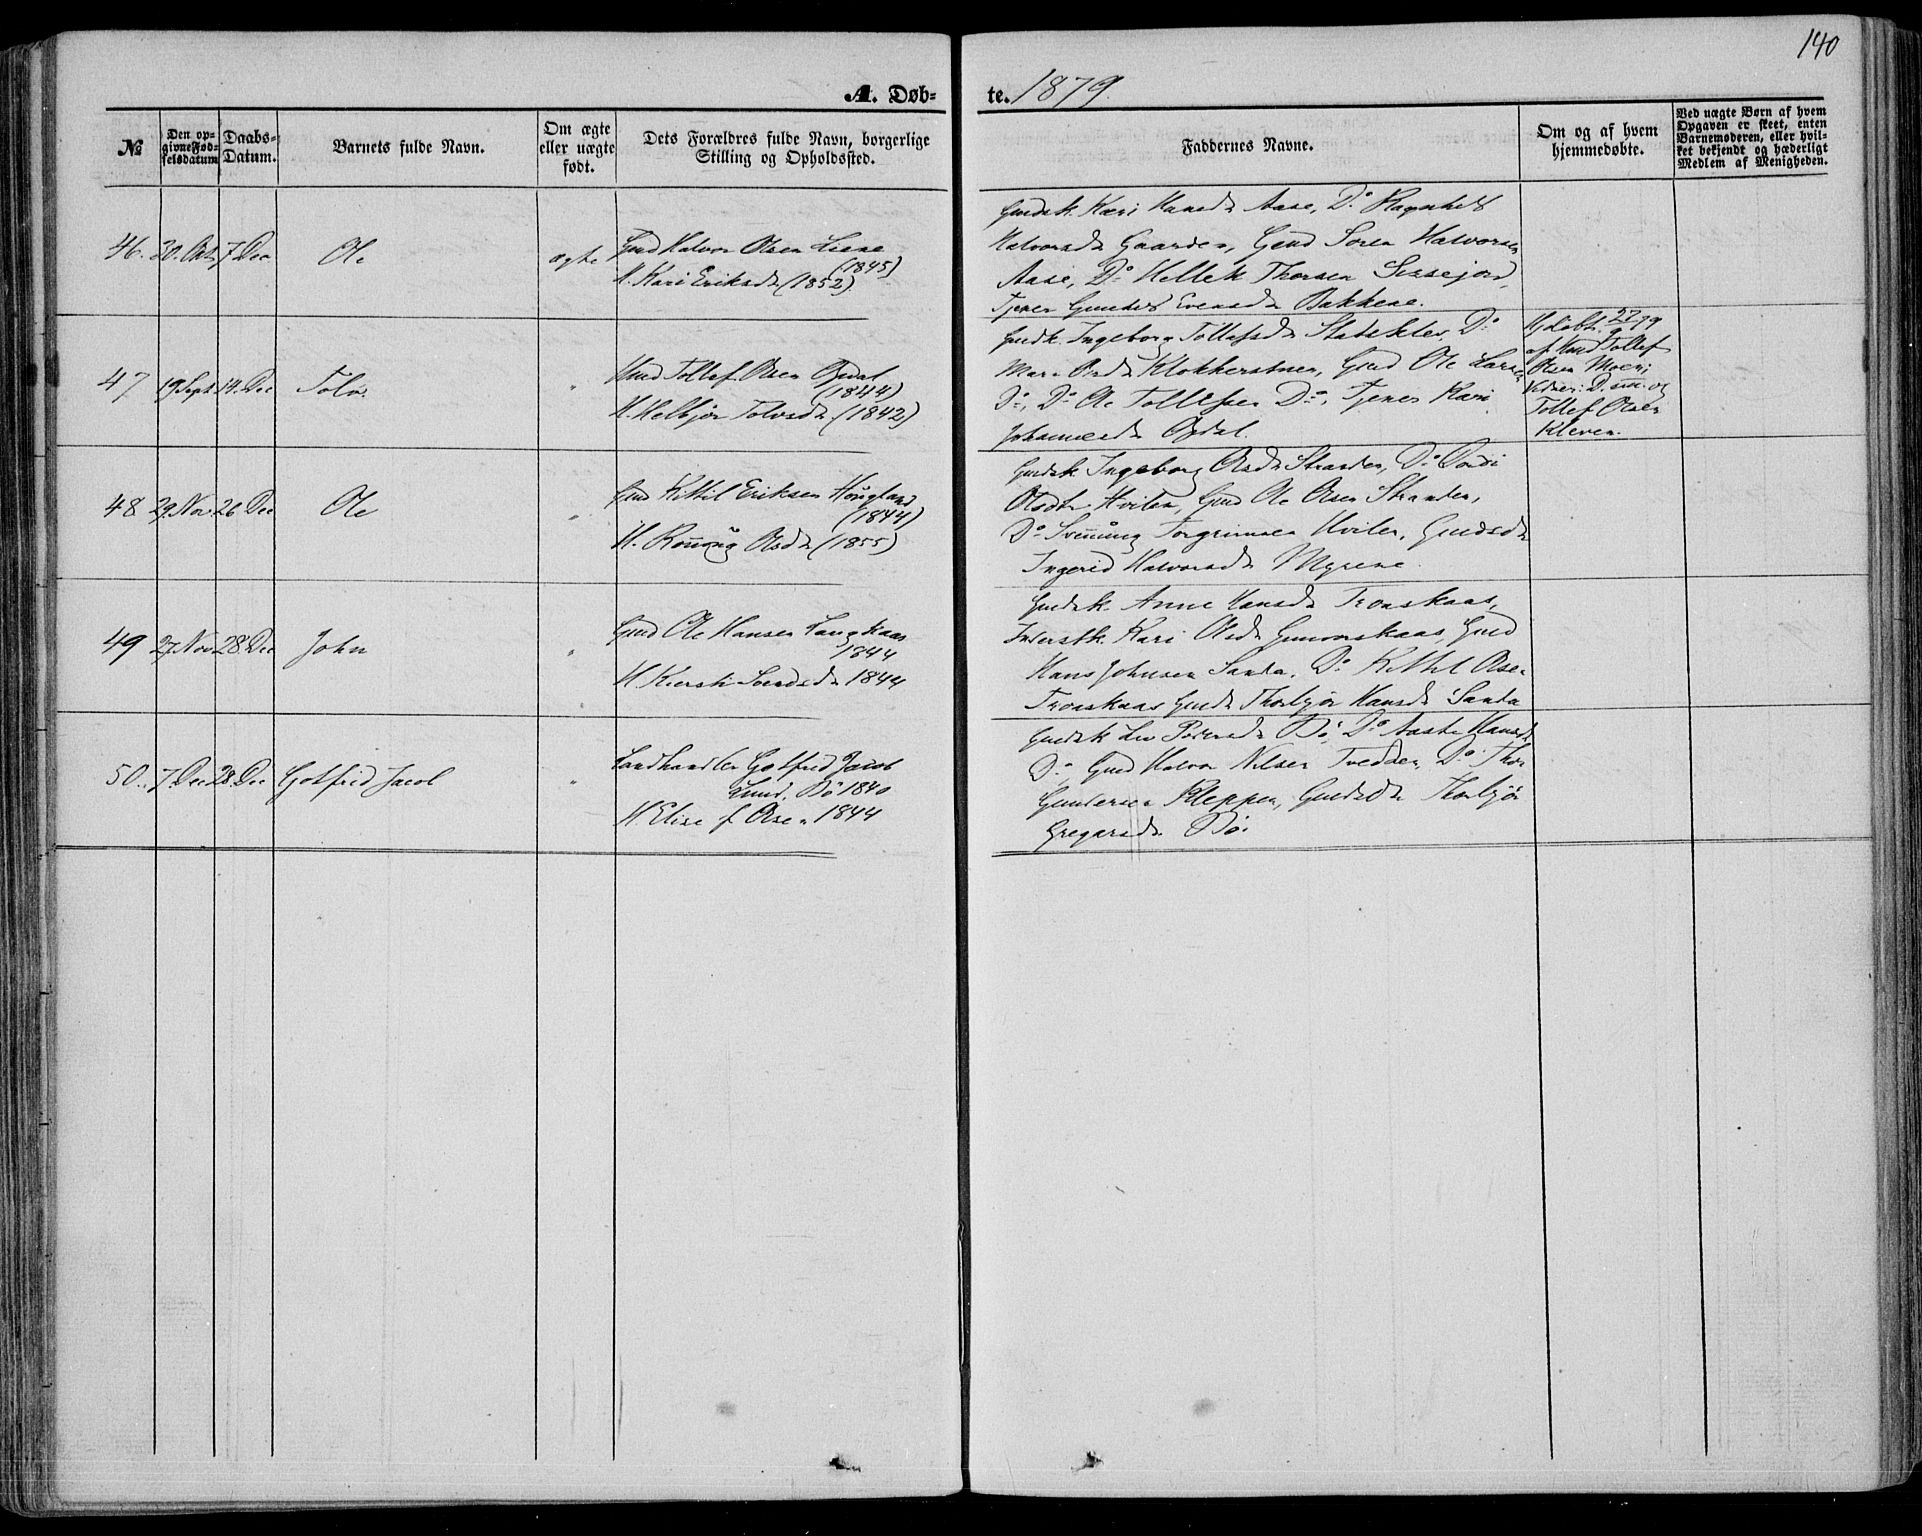 140
A. Døb-
te. 1879.
№
Den op-
givne Fød-
selsdatum
Daabs-
Datum.
Barnets fulde Navn.
Om ægte
eller uægte
født.
Dets Forældres fulde Navn, borgerlige
Stilling og Opholdssted.
Faddernes Navne.
Om og af hvem
hjemmedøbte.
Ved uægte Børn af hvem
Opgaven er skeet, enten
Barnemoderen, eller hvil-
ket bekjendt og hæderligt
Medlem af Menigheden.
46. 30. Oct. 7 Dec Ole ægte
Gmd Halvor Olsen Liene
(1845)
H. Kari Eriksdr (1852)
Gmdsk. Kari Hansdr Aase, Do Ragnhild
Halvorsdr Gaarden, Gmd Søren Halvorsen
Aase, Do Hellek Thorsen
Tjener Gunhild Evensdr Bakkene.
47 19 Sept 14. Dec Tolv "
Hmd Tollef Olsen Opdal
(1844)
H. Helbjør Tolvsdr (1842)
Gmdk. Ingeborg Tollefsdr Do
Olsdr Klokkerstuen, Gmd Ole Larsen
Do, Do Ole Tollefsen Do, Tjener Kari
Johannesdr Opdal.
Hjdøbt 27/9 79
af Gmd Tollef
Olsen Moen;
Vidner: D. og
Tollef Olsen
Kleven.
48 29 Nov. 26 Dec Ole "
Gmd Kittil Eriksen Haugland
(1844)
H. Rønnoug Olsdr (1855)
Gmdsk. Ingeborg Olsdr Stranden, Do
Olsdtr Hvilen, Gmd Ole Olsen Stranden,
Do Svennung Torgrimsen Hvilen, Gmdsdr
Ingerid Halvorsdr Myrene.
49 27. Nov 28. Dec John "
Gmd Ole Hansen Langkaas
1844
H Kiersti 1844
Gmdsk. Anne Hansdr Tronskaas,
Kari Olsdr Gunvorskaas, Gmd
Hans Johnsen Sanda, Do Kittil Olsen
Tronskaas Gmdr Thorbjør Hansdr Sanda
50. 7. Dec 28. Dec Gotfrid Jacob "
Landhandler Gotfrid Jacob
Lund, Bø 1840
H. Elise f. Olsen 1844
Gmdsk Liv Pedersdr Bø, Do Aaste Hansdr
Do, Gmd Halvor Nilsen Tvedden, Do Thor
Gundersen Kleppen, Gmdsdr Thorbjør
Gregarsdr Bø.